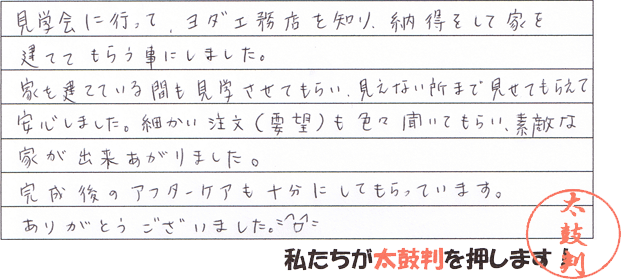 見学会に行って、ヨダ工務店を知り、納得をして家を
建ててもらう事にしました。
家を建てている間も見学させてもらい、見えない所まで見せてもらえて
安心しました。細かい注文(要望)も色々聞いてもらい、素敵な
家が出来あがりました。
完成後のアフターケアも十分にしてもらっています。
ありがとうございました。
私たちが太鼓判を押します!
太鼓判